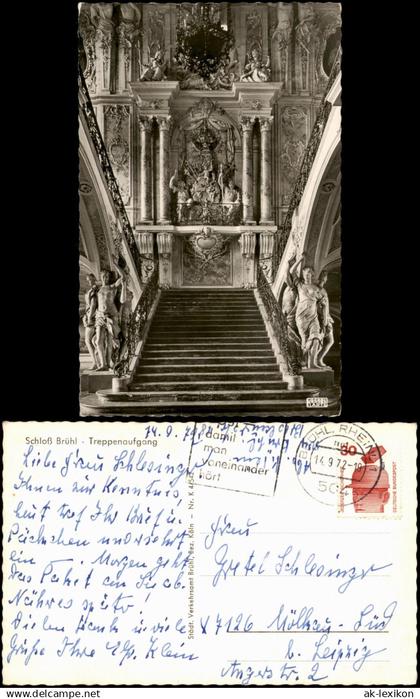 Schloß Brühl - Treppenaufgang
14.9.72
Liebe Frau Schlesinger
Ihnen zur Kenntnis,
heut traf Ihr Brief u.
Päckchen unversehrt
ein. Morgen geht
das Paket an Sie ab.
Näheres später!
Vielen Dank u. viele
Grüße Ihre Klein
Städt. Verkehrsamt Brühl, Bez. Köln - Nr. K 454
damit
man
voneinander
hört
BRÜHL, RHEINL
14.9.72-18
504
30
DEUTSCHE BUNDESPOST
Frau
Gretel Schlesinger
X 7126 Mölkau-Süd
b. Leipzig
Angerstr. 2
© ak-lexikon
ak-lexikon.com